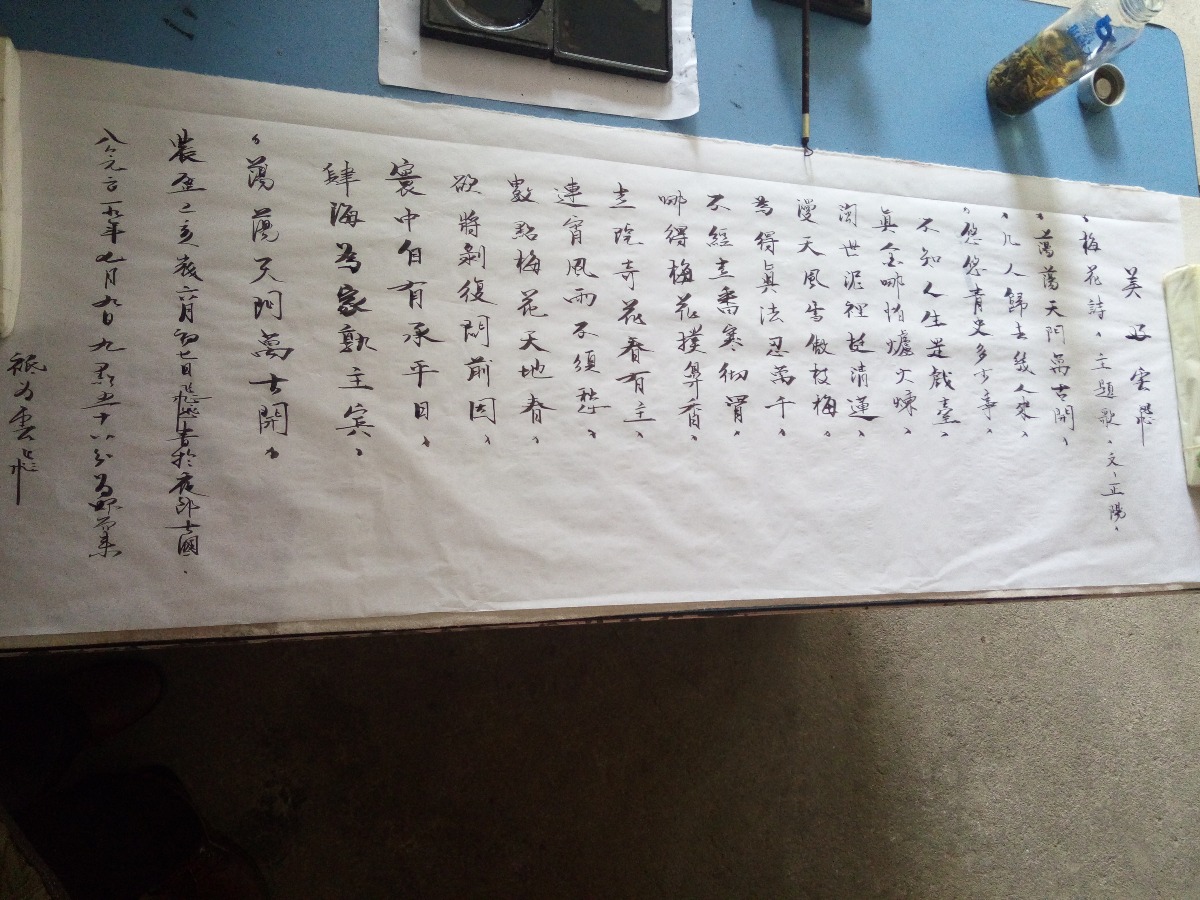 美 雲飛
梅花詩、主題歌、文、正陽、
蕩蕩天門萬古開、
几人歸去幾人來、
悠悠青史多少事、
不知人生是戲臺、
真金哪怕爐火煉、
濁世泥裡挺清蓮、
漫天風雪傲枝梅、
為得真法忍萬千、
不經 番寒徹骨、
哪得梅花撲鼻香、
院奇花春有主、
連宵風雨不須愁、
數點梅花天地春、
欲將剝復問前因、
寰中自有承平日、
肆海為家孰主賓、
蕩蕩天門萬古開、
農歷己亥歲六月初七日飛 書於夜郎古國、
公元 一九年七月九日九點 十八分
雲飛